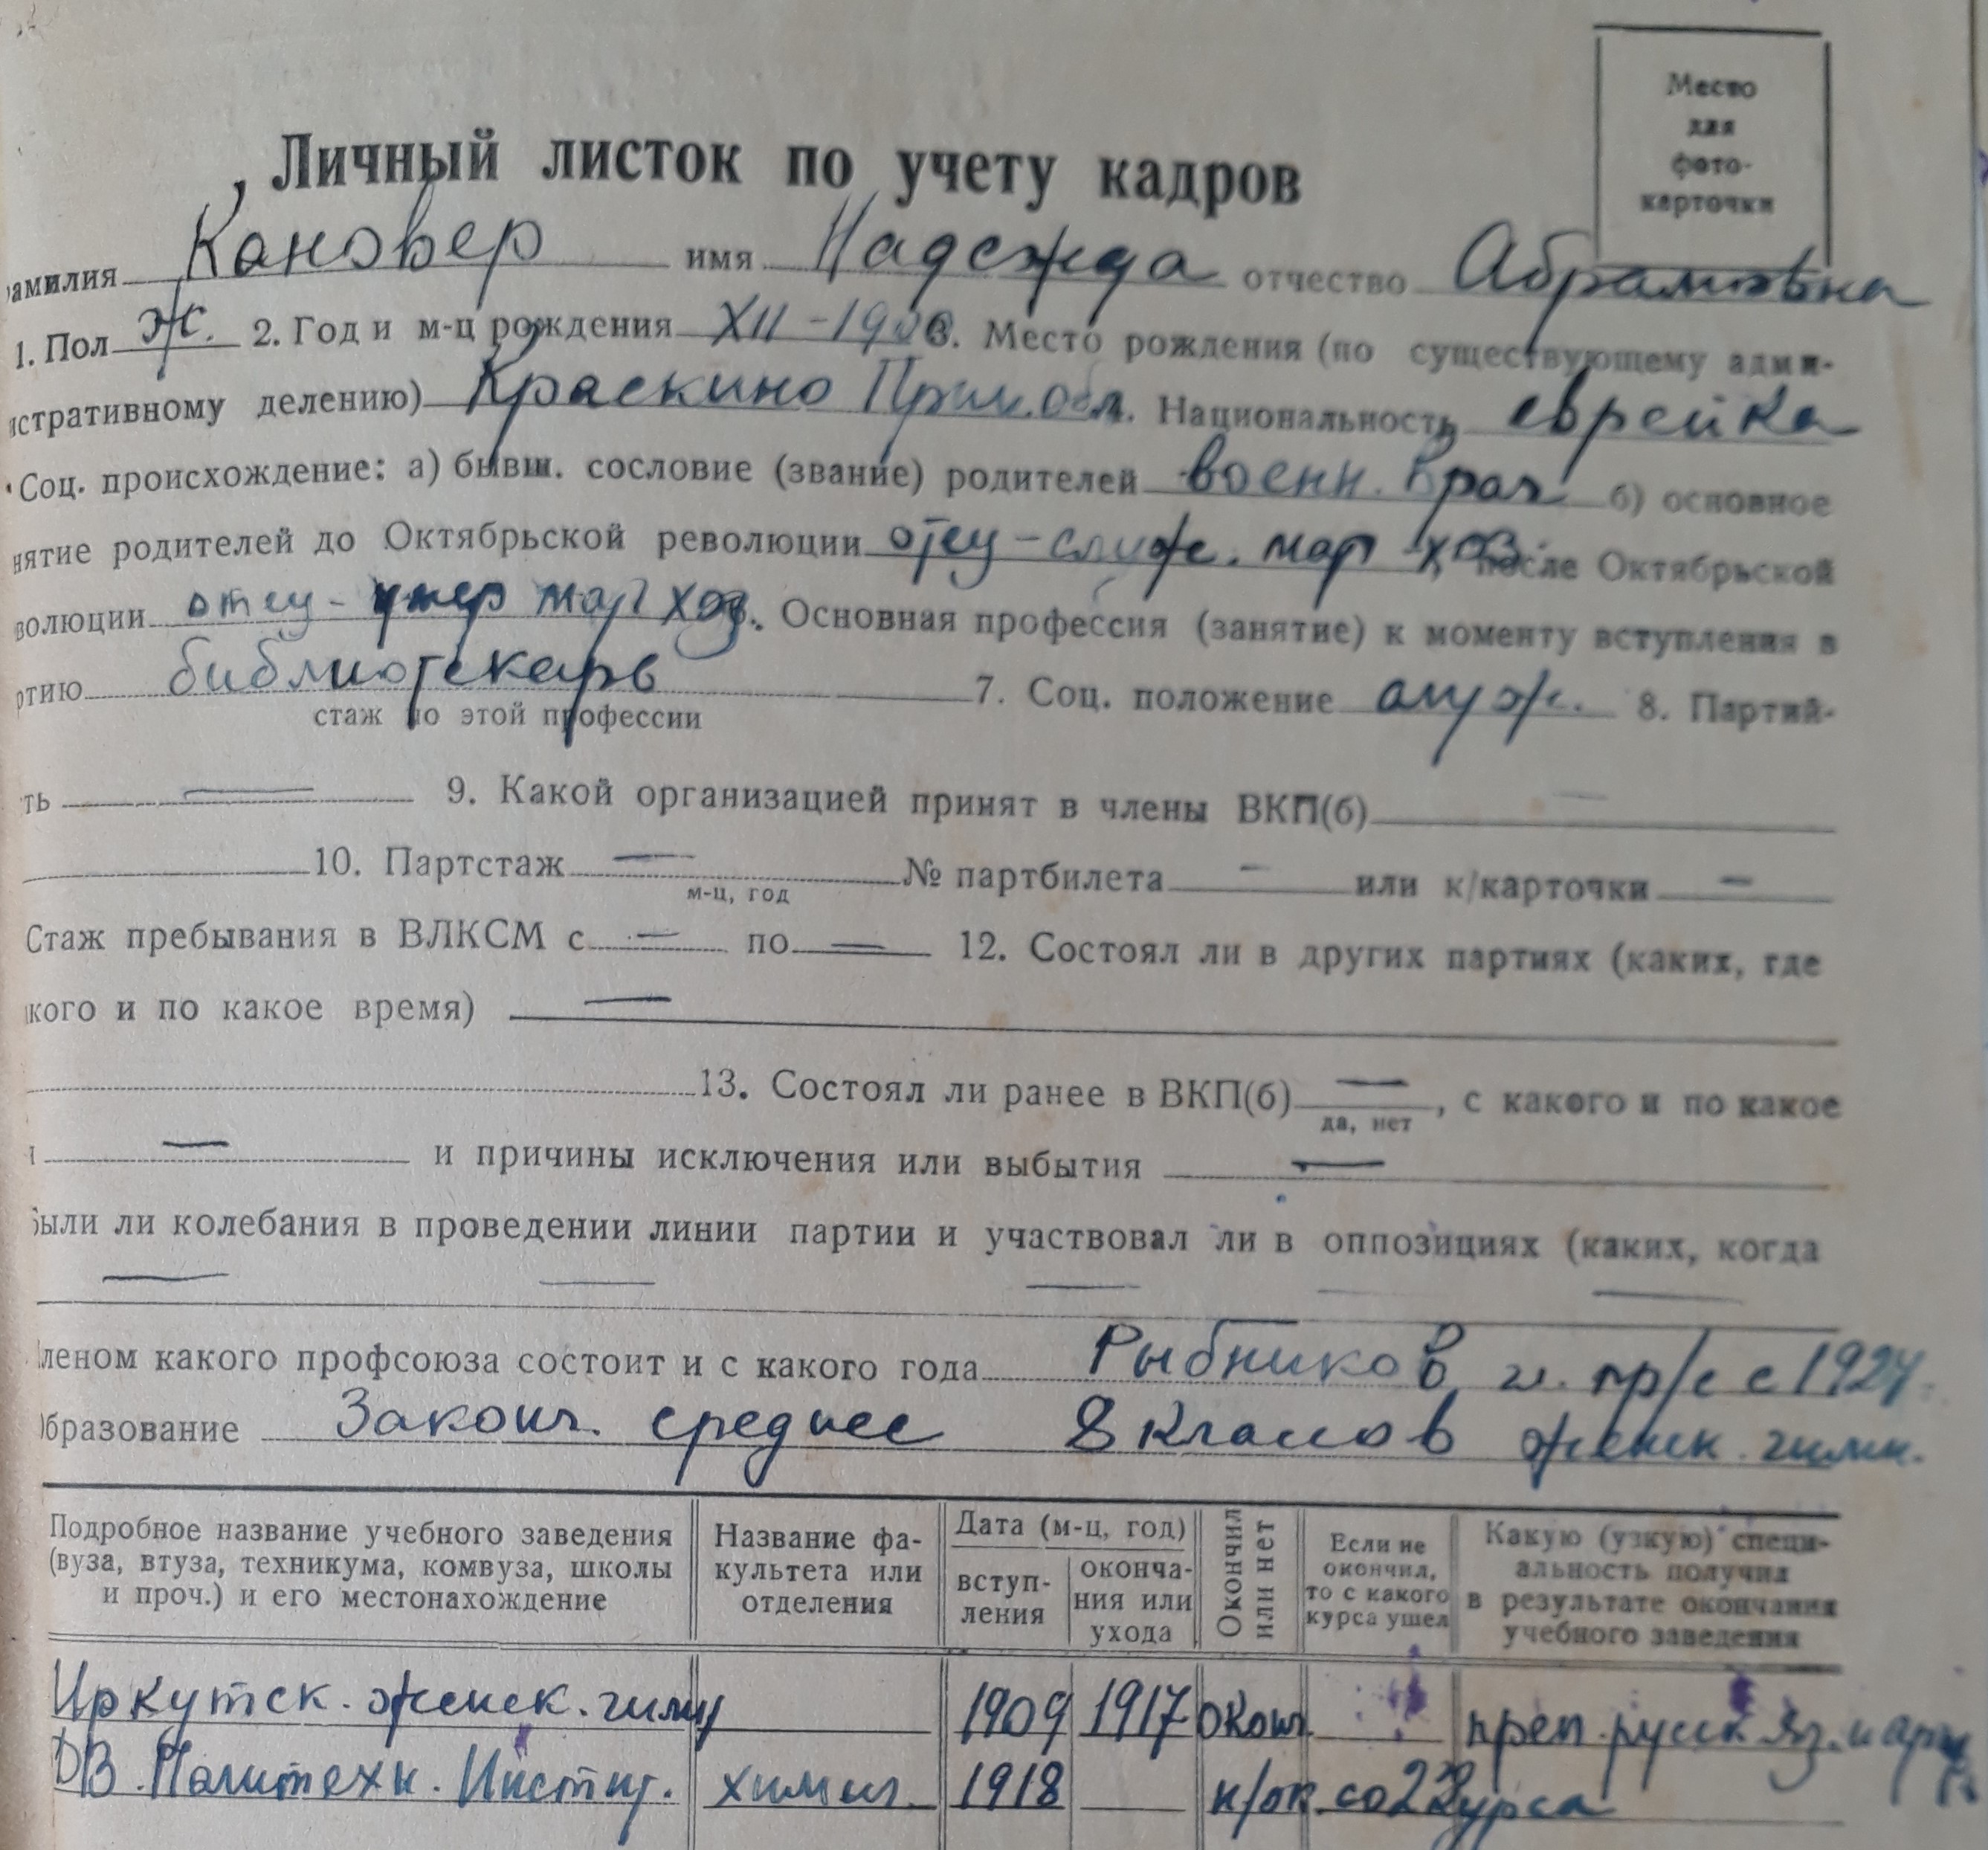 Место
для
фото-
карточки
Личный листок по учету кадров
амилия Кановер имя Надежда отчество Абрамовна
1. Пол Ж. 2. Год и м-ц рождения XII-1900 3. Место рождения (по существующему адми-
истративному делению) Краскино Прим. обл. Национальность еврейка
Соц. происхождение: а) бывш. сословие (звание) родителей военн. врач б) основное
нятие родителей до Октябрьской революции отец - служ. мат хоз. после Октябрьской
волюции отец - умер мать хоз. Основная профессия (занятие) к моменту вступления в
ртию библиотекарь 7. Соц. положение служ. 8. Партий-
стаж по этой профессии
ть — 9. Какой организацией принят в члены ВКП(б) —
10. Партстаж — № партбилета — или к/карточки —
м-ц, год
Стаж пребывания в ВЛКСМ с — по — 12. Состоял ли в других партиях (каких, где
кого и по какое время) —
13. Состоял ли ранее в ВКП(б) —, с какого и по какое
да, нет
— и причины исключения или выбытия —
были ли колебания в проведении линии партии и участвовал ли в оппозициях (каких, когда
— — — — —
леном какого профсоюза состоит и с какого года Рыбников пр/с с 1924
бразование Законч. среднее 8 классов женск. гимн.
Подробное название учебного заведения (вуза, втуза, техникума, комвуза, школы и проч.) и его местонахождение
Название фа-культета или отделения
Дата (м-ц, год)
вступ-ления
оконча-ния или ухода
Окончил или нет
Если не окончил, то с какого курса ушел
Какую (узкую) специ-альность получил в результате окончания учебного заведения
Иркутск. женск. гимн — 1909 1917 Оконч. — преп. русск. яз. и
ДВ. Политехн. Инстит. химич. 1918 — н/ок со 2 курса